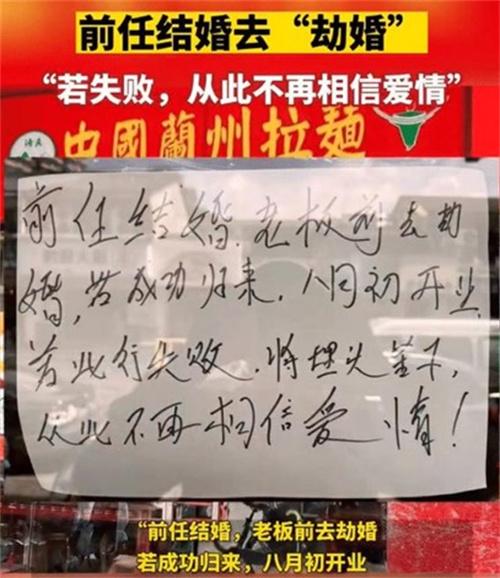 前任结婚去“劫婚”
“若失败，从此不再相信爱情”
中國蘭州拉麵
前任结婚.老板前去劫
婚,若成功归来.八月初开业
若此行失败.将埋头苦干,
从此不再相信爱情!
“前任结婚，老板前去劫婚
若成功归来，八月初开业